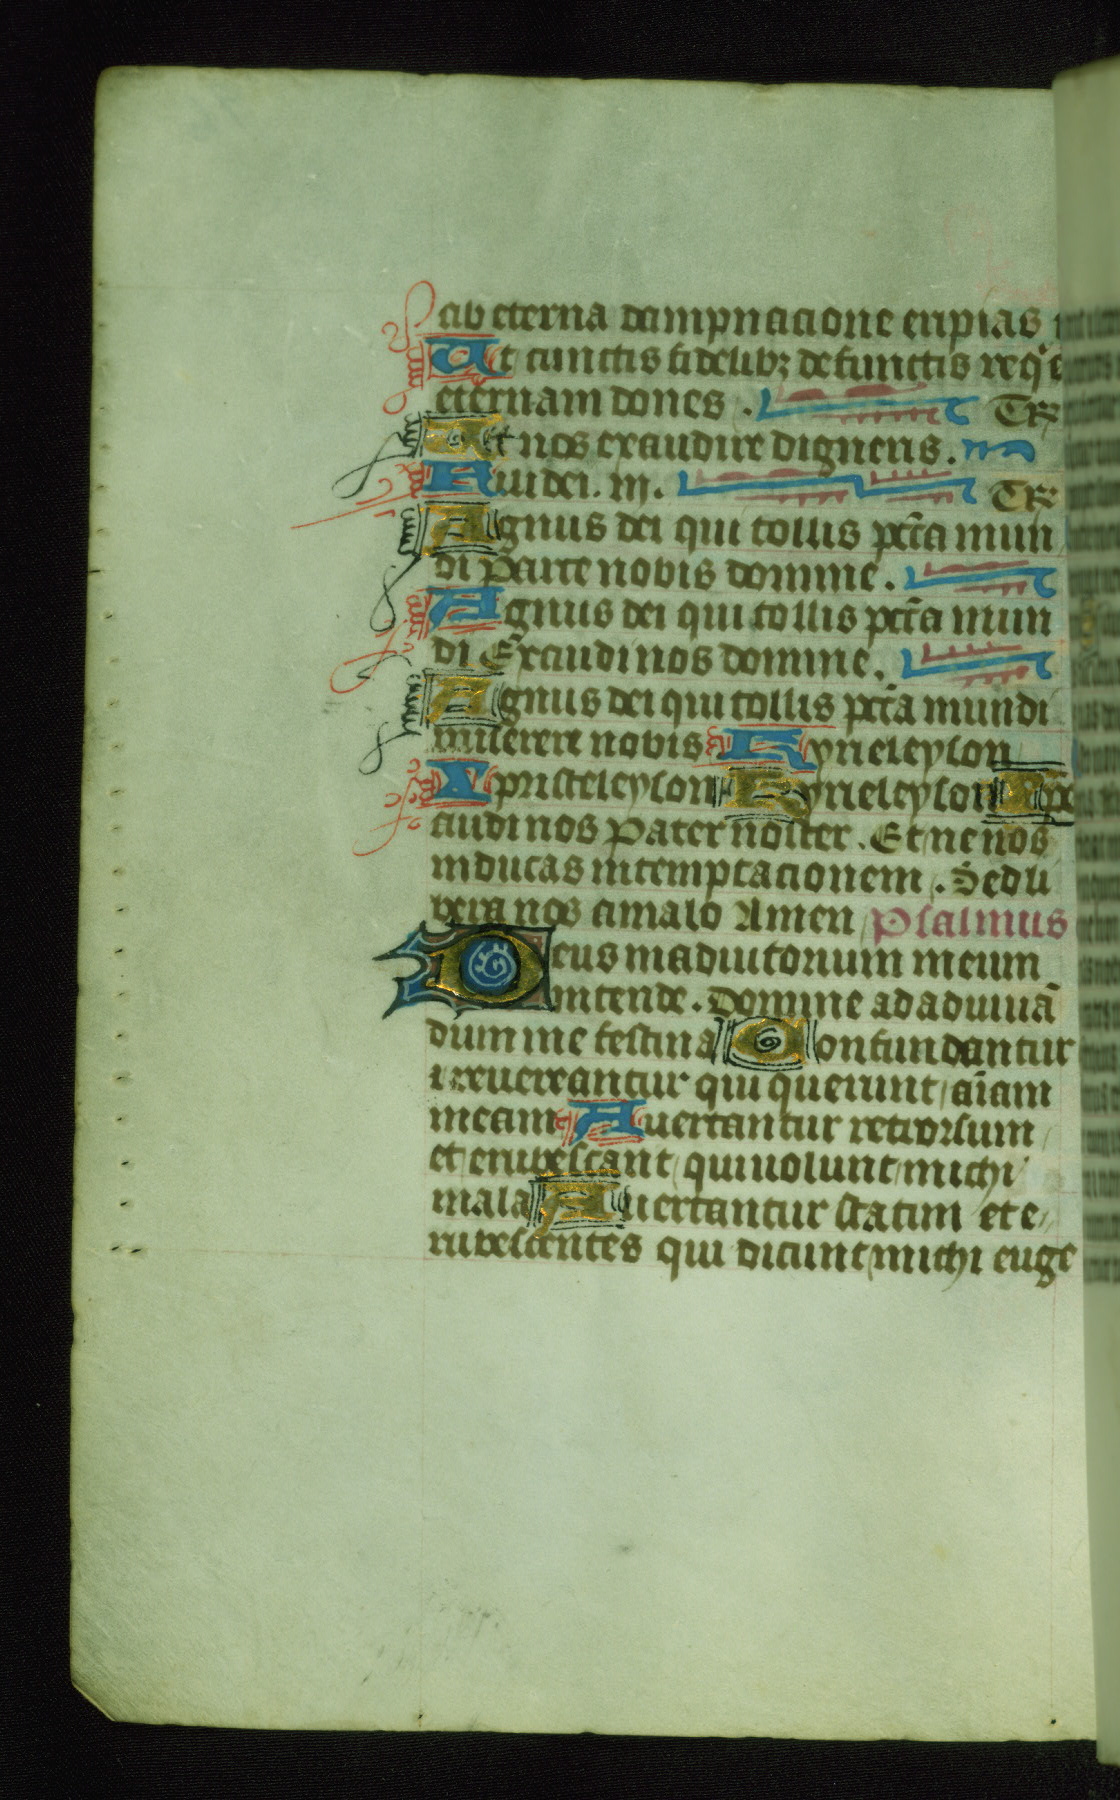 ab eterna dampnacione eripias
Ut cunctis fidelibꝫ defunctis reqͥe
eternam dones . Te Rͬ
Ut nos exaudire digneris .
Fili dei . iii . Te Rͬ
Agnus dei qui tollis pctā mun
di Parce nobis domine .
Agnus dei qui tollis pctā mun
di Exaudi nos domine .
Agnus dei qui tollis pctā mundi
miserere nobis Kyrieleyson
Xpristeleyson Kyrieleyson Ex
audi nos Pater noster . Et ne nos
inducas in temptacionem . Sed li
bera nos amalo Amen Psalmus
Deus in adiutorium meum
intende . Domine ad adiuuā
dum me festina Confundantur
i reuereantur qui querunt aīam
meam Auertantur retrorsum
et erubescant qui uolunt michi
mala Auertantur statim et e
rubescentes qui dicunt michi euge